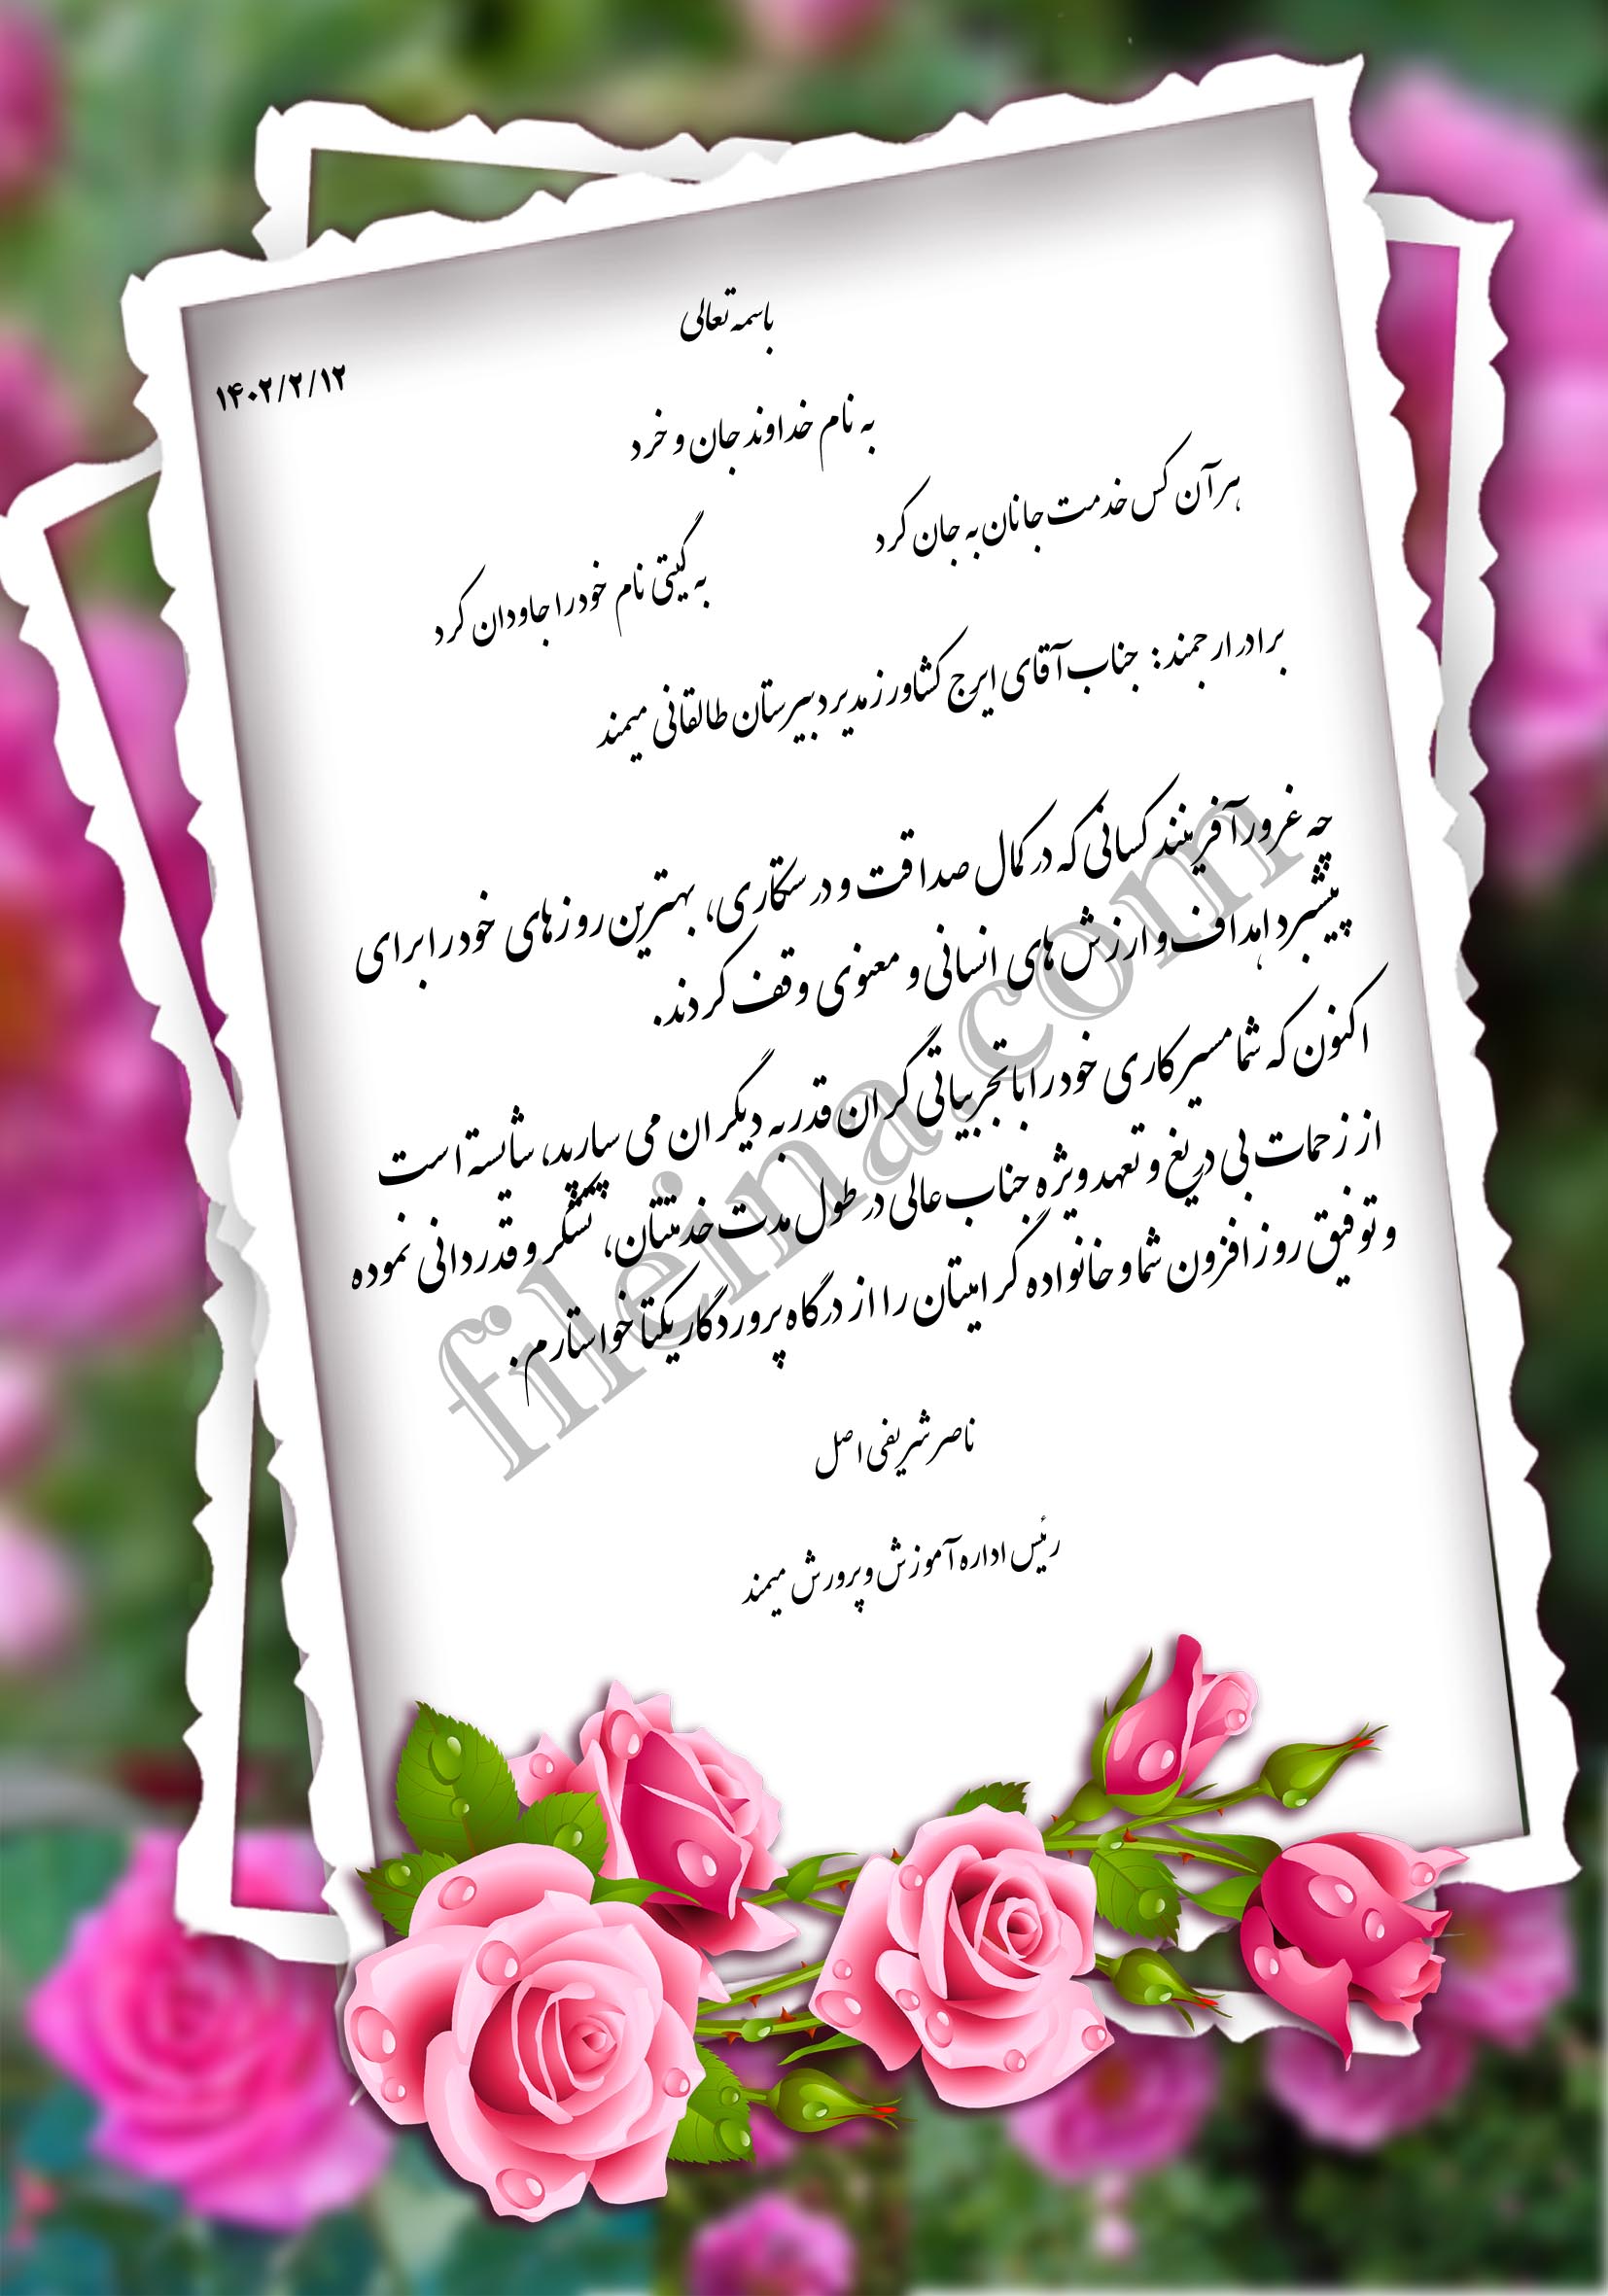 باسمه تعالی
۱۴۰۲/۲/۱۲
به نام خداوند جان و خرد
هر آن کس خدمت جانان به جان کرد
به گیتی نام خود را جاودان کرد
برادر ارجمند: جناب آقای ایرج کشاورز مدیر دبیرستان طالقانی میمند
چه غرور آفرینند کسانی که در کمال صداقت و درستکاری، بهترین روزهای خود را برای
پیشبرد اهداف و ارزش های انسانی و معنوی وقف کردند.
اکنون که شما مسیر کاری خود را با تجربیاتی گران قدر به دیگران می سپارید، شایسته است
از زحمات بی دریغ و تعهد ویژه جناب عالی در طول مدت خدمتتان، تشکر و قدردانی نموده
و توفیق روز افزون شما و خانواده گرامیتان را از درگاه پروردگار یکتا خواستارم.
ناصر شریفی اصل
رئیس اداره آموزش و پرورش میمند
fileina.com